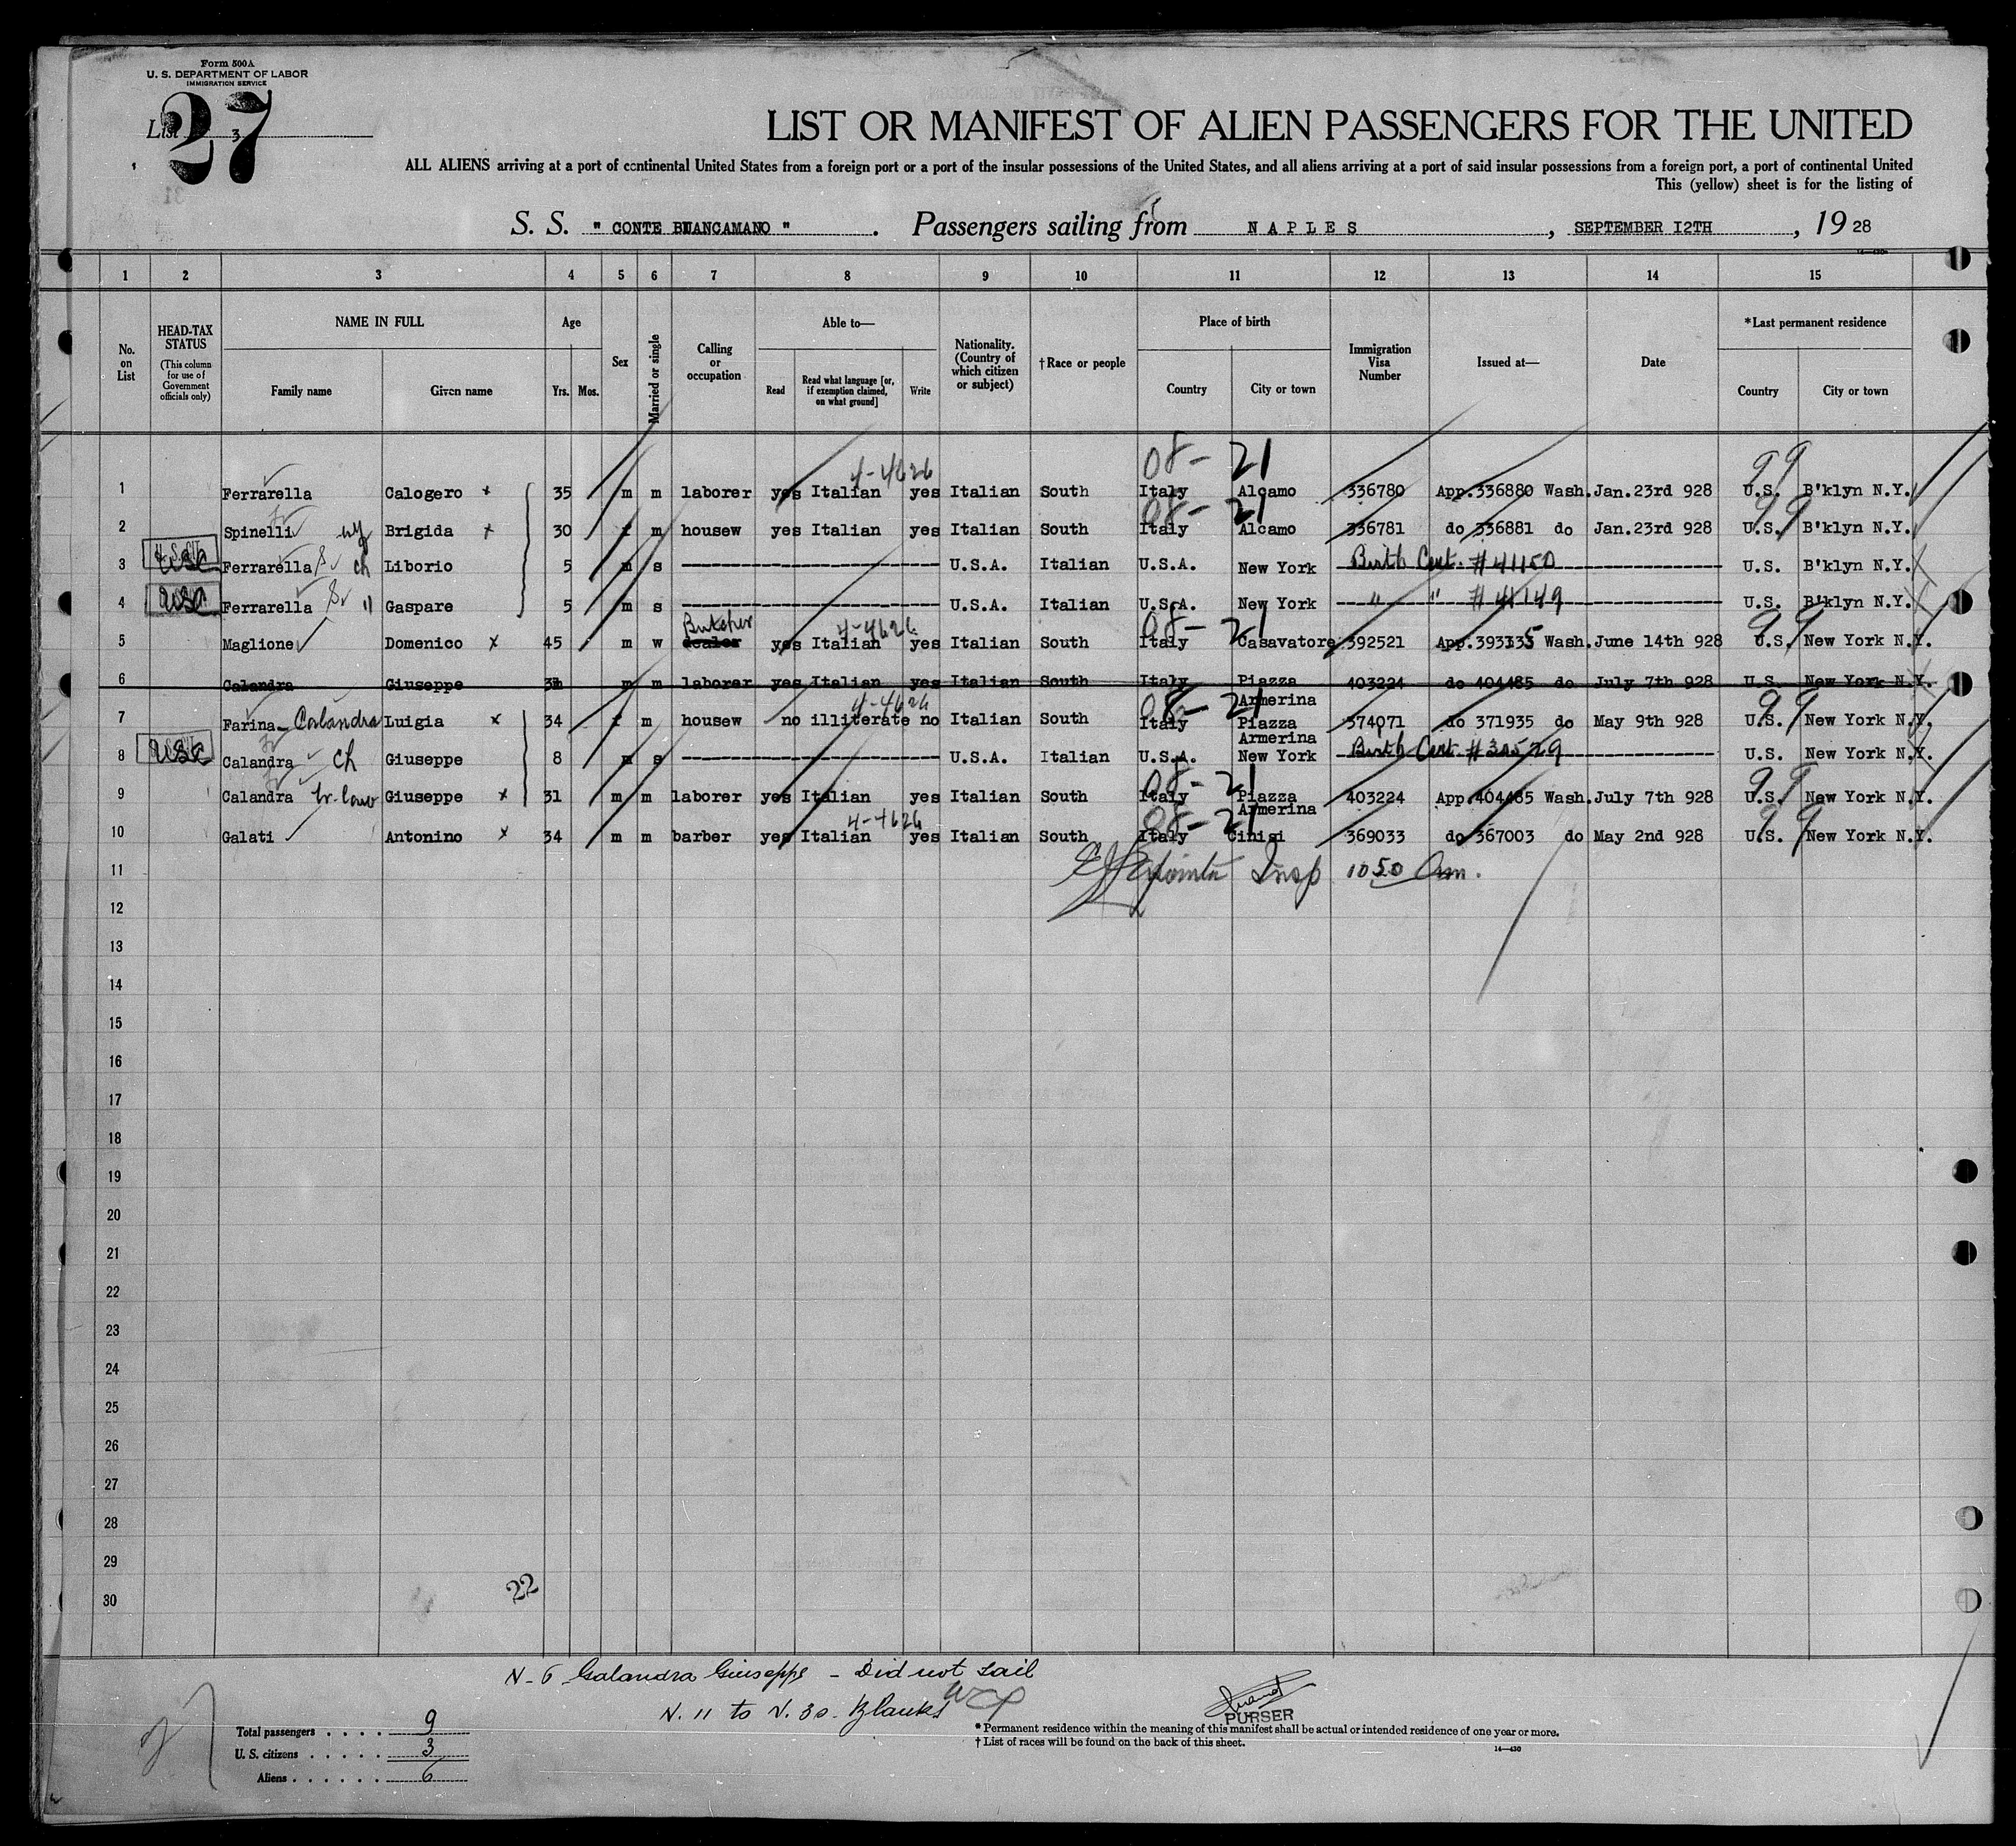 Form 500A
U. S. DEPARTMENT OF LABOR
IMMIGRATION SERVICE
27
List 3
LIST OR MANIFEST OF ALIEN PASSENGERS FOR THE UNITED
ALL ALIENS arriving at a port of continental United States from a foreign port or a port of the insular possessions of the United States, and all aliens arriving at a port of said insular possessions from a foreign port, a port of continental United
This (yellow) sheet is for the listing of
S. S. " CONTE BIANCAMANO ". Passengers sailing from NAPLES, SEPTEMBER I2TH, 19 28
1 2 3 4 5 6 7 8 9 10 11 12 13 14 15
No. on List
HEAD-TAX STATUS
(This column for use of Government officials only)
NAME IN FULL
Family name Given name
Age
Yrs. Mos.
Sex
Married or single
Calling or occupation
Able to—
Read
Read what language [or, if exemption claimed, on what ground]
Write
Nationality. (Country of which citizen or subject)
†Race or people
Place of birth
Country City or town
Immigration Visa Number
Issued at—
Date
*Last permanent residence
Country City or town
08- 21 4-4626 99
1 Ferrarella Calogero x 35 m m laborer yes Italian yes Italian South Italy Alcamo 336780 App.336880 Wash. Jan.23rd 928 U.S. B'klyn N.Y.
08- 21 99
2 Spinelli wf Brigida x 30 f m housew yes Italian yes Italian South Italy Alcamo 336781 do 336881 do Jan.23rd 928 U.S. B'klyn N.Y.
3 USC Ferrarella ch Liborio 5 m s U.S.A. Italian U.S.A. New York Birth Cert. #41150 U.S. B'klyn N.Y.
4 USC Ferrarella " Gaspare 5 m s U.S.A. Italian U.S.A. New York " " #41149 U.S. B'klyn N.Y.
Butcher 4-4626 08- 21 99
5 Maglione Domenico x 45 m w dealer yes Italian yes Italian South Italy Casavatore 392521 App.393335 Wash. June 14th 928 U.S. New York N.Y.
6 Calandra Giuseppe 31 m m laborer yes Italian yes Italian South Italy Piazza Armerina 403224 do 404485 do July 7th 928 U.S. New York N.Y.
4-4626 08- 21 99
7 Farina- Calandra Luigia x 34 f m housew no illiterate no Italian South Italy Piazza Armerina 374071 do 371935 do May 9th 928 U.S. New York N.Y.
8 USC Calandra ch Giuseppe 8 m s U.S.A. Italian U.S.A. New York Birth Cert #30529 U.S. New York N.Y.
08- 21 99
9 Calandra br. law Giuseppe x 31 m m laborer yes Italian yes Italian South Italy Piazza Armerina 403224 App.404485 Wash. July 7th 928 U.S. New York N.Y.
4-4626 08- 21 99
10 Galati Antonino x 34 m m barber yes Italian yes Italian South Italy Cinisi 369033 do 367003 do May 2nd 928 U.S. New York N.Y.
11 Insp 1050 Am.
12
13
14
15
16
17
18
19
20
21
22
23
24
25
26
27
28
29
30
22
N-6 Galandra Giuseppe - Did not sail
N. 11 to N. 30. Blanks
PURSER
Total passengers . . . . 9
U. S. citizens . . . . . 3
Aliens . . . . . . 6
* Permanent residence within the meaning of this manifest shall be actual or intended residence of one year or more.
† List of races will be found on the back of this sheet.
14—430